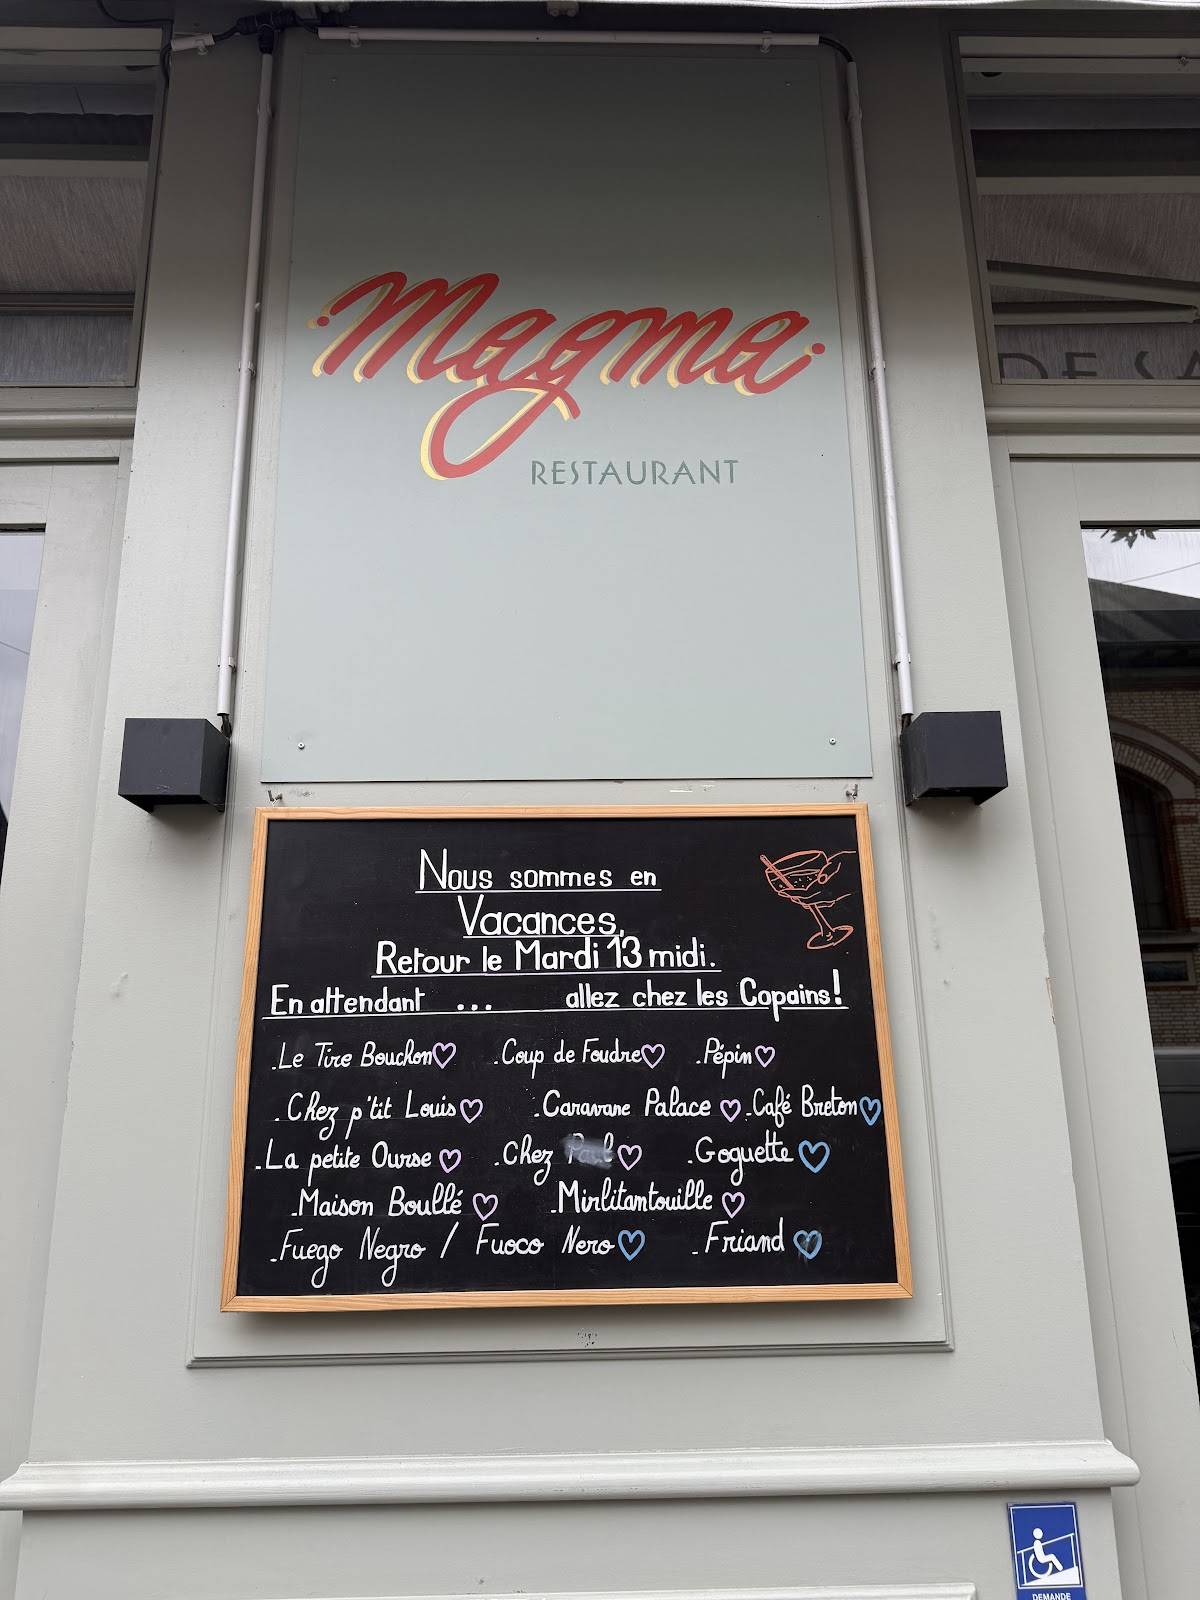 Magma
RESTAURANT
DE SA
Nous sommes en
Vacances,
Retour le Mardi 13 midi.
En attendant ... allez chez les Copains!
.Le Tire Bouchon♡ .Coup de Foudre♡ .Pépin♡
.Chez p'tit Louis♡ .Caravane Palace♡ .Café Breton♡
.La petite Ourse♡ .Chez Paul♡ .Goguette♡
.Maison Boullé♡ .Mirlitantouille♡
.Fuego Negro / Fuoco Nero♡ .Friand♡
DEMANDE